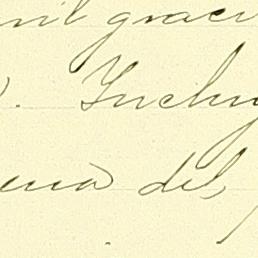 mil graci
. Incluy
ena del